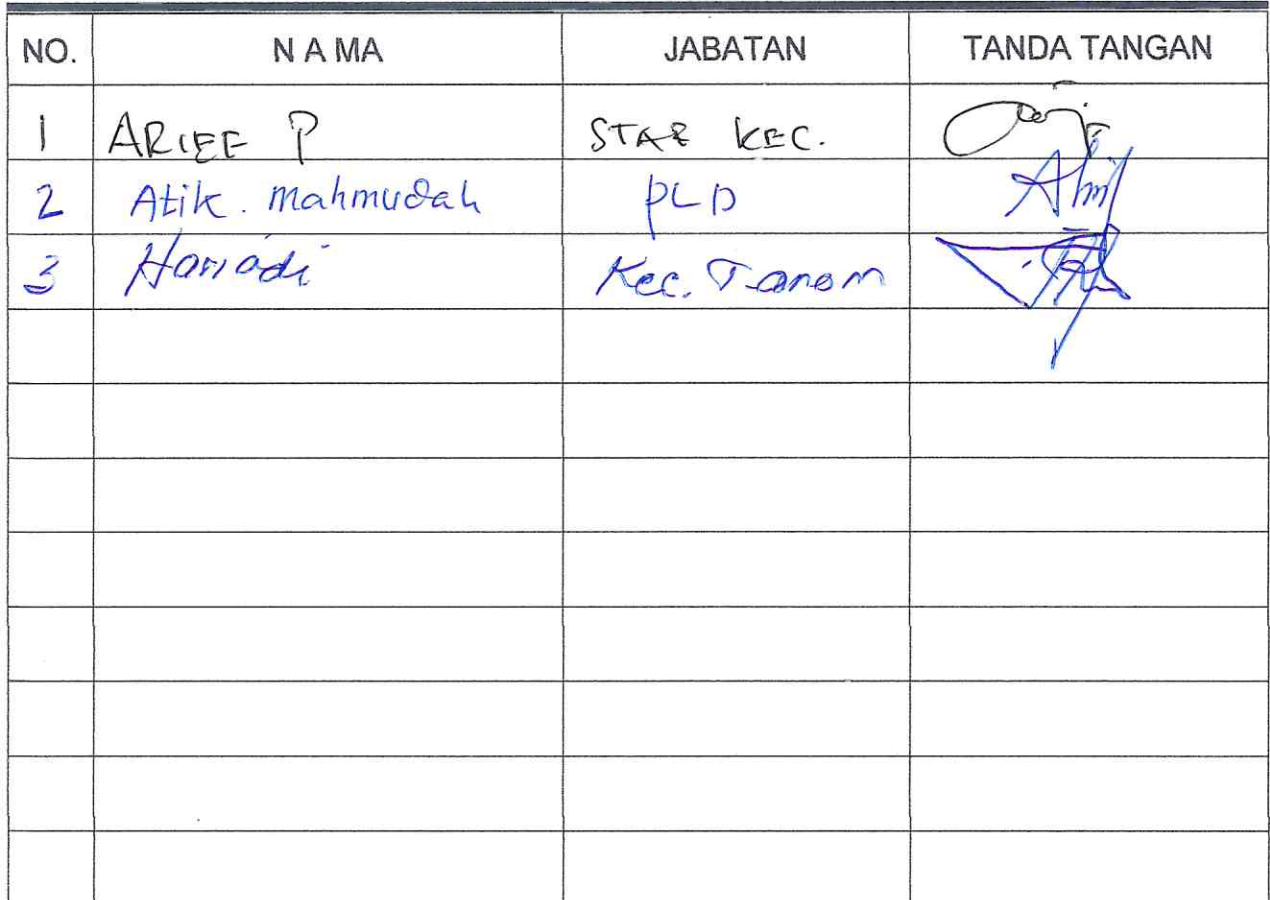 NO. N A M A JABATAN TANDA TANGAN
1 ARIEF P STAF KEC.
2 Atik. Mahmudah PLD
3 Hariadi Kec. Tanom